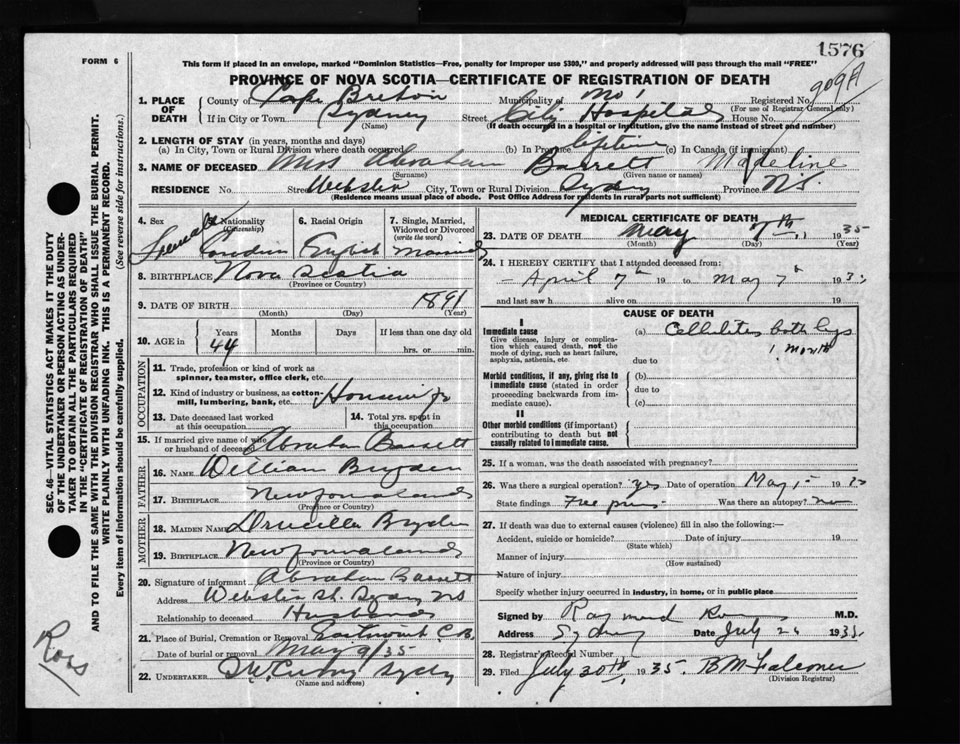 1576
FORM 6
This form if placed in an envelope, marked "Dominion Statistics—Free, penalty for improper use $300," and properly addressed will pass through the mail "FREE"
909A
PROVINCE OF NOVA SCOTIA—CERTIFICATE OF REGISTRATION OF DEATH
1. PLACE OF DEATH County of Cape Breton Municipality of Registered No.
(For use of Registrar General only)
If in City or Town Sydney Street City Hospital House No.
(Name) (If death occurred in a hospital or institution, give the name instead of street and number)
2. LENGTH OF STAY (in years, months and days)
(a) In City, Town or Rural Division where death occurred (b) In Province lifetime (c) In Canada (if immigrant)
3. NAME OF DECEASED Mrs Abraham Barrett Madeline
(Surname) (Given name or names)
RESIDENCE No. Street Webster City, Town or Rural Division Sydney Province N.S.
(Residence means usual place of abode. Post Office Address for residents in rural parts not sufficient)
4. Sex 5. Nationality (Citizenship) 6. Racial Origin 7. Single, Married, Widowed or Divorced (write the word)
Female Canadian English Married
8. BIRTHPLACE Nova Scotia
(Province or Country)
9. DATE OF BIRTH 1891
(Month) (Day) (Year)
10. AGE in Years Months Days If less than one day old
44 hrs. or min.
OCCUPATION
11. Trade, profession or kind of work as spinner, teamster, office clerk, etc.
12. Kind of industry or business, as cotton-mill, lumbering, bank, etc.
13. Date deceased last worked at this occupation 14. Total yrs. spent in this occupation
15. If married give name of wife or husband of deceased Abraham Barrett
FATHER
16. NAME William Bryden
17. BIRTHPLACE Newfoundland
(Province or Country)
MOTHER
18. MAIDEN NAME Drucilla Bryden
19. BIRTHPLACE Newfoundland
(Province or Country)
20. Signature of informant Abraham Barrett
Address Webster St. Sydney NS
Relationship to deceased Husband
21. Place of Burial, Cremation or Removal Eastmount C.B.
Date of burial or removal May 9/35
22. UNDERTAKER Sydney
(Name and address)
MEDICAL CERTIFICATE OF DEATH
23. DATE OF DEATH May 7th, 1935
(Month) (Day) (Year)
24. I HEREBY CERTIFY that I attended deceased from:
April 7th 19 to May 7th 193
and last saw h alive on 19
CAUSE OF DEATH
I
Immediate cause
Give disease, injury or complication which caused death, not the mode of dying, such as heart failure, asphyxia, asthenia, etc.
(a) Cellulitis both legs
1 month
due to
Morbid conditions, if any, giving rise to immediate cause (stated in order proceeding backwards from immediate cause).
(b)
due to
(c)
II
Other morbid conditions (if important) contributing to death but not causally related to immediate cause.
25. If a woman, was the death associated with pregnancy?
26. Was there a surgical operation? yes Date of operation May 193
State findings Free pus Was there an autopsy? no
27. If death was due to external causes (violence) fill in also the following:—
Accident, suicide or homicide? Date of injury 19
(State which)
Manner of injury
(How sustained)
Nature of injury
Specify whether injury occurred in industry, in home, or in public place
Signed by Raymond M.D.
Address Sydney Date July 1935
28. Registrar's Record Number
29. Filed July 30th, 1935. B M Falconer
(Division Registrar)
SEC. 46—VITAL STATISTICS ACT MAKES IT THE DUTY
OF THE UNDERTAKER OR PERSON ACTING AS UNDER-
TAKER TO OBTAIN ALL THE PARTICULARS REQUIRED
IN THE "CERTIFICATE OF REGISTRATION OF DEATH"
AND TO FILE THE SAME WITH THE DIVISION REGISTRAR WHO SHALL ISSUE THE BURIAL PERMIT.
WRITE PLAINLY WITH UNFADING INK. THIS IS A PERMANENT RECORD.
Every item of information should be carefully supplied. (See reverse side for instructions.)
Ross